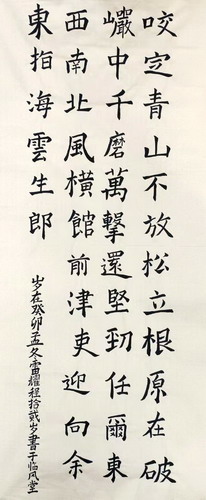 咬定青山不放松立根原在破
巗中千磨萬擊還堅劲任爾東
西南北風橫館前津吏迎向余
東指海雲生郎
岁在癸卯孟冬雷耀程拾贰岁書于临风堂